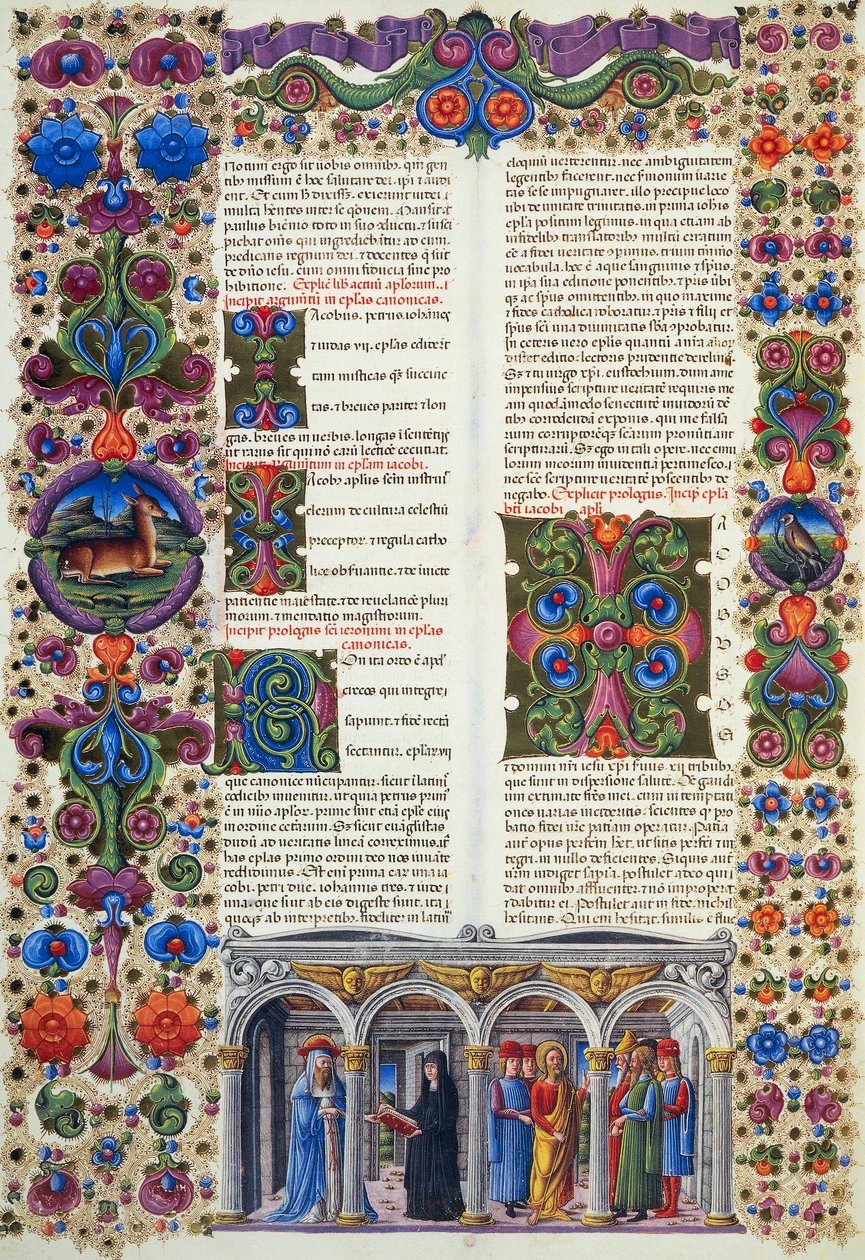 Notum ergo sit uobis omnib₉. qm̄ gen
tib₉ missum ē hoc salutare dei. ip̄i ⁊ audi
ent. Et cum h̄ dixisset. exierunt iudei
multā hn̄tes inter se q̄onem. Mansit āt
paulus biēnio toto in suo ꝯductu. ⁊ susci
piebat omīs qui ingrediebāt̄ ad eum.
predicans regnum dei. ⁊ docens q̄ sūt
de dn̄o iesu. cum omni fiducia sine pro
hibitione. Explic̄ lib̄ actuū apl̄orum.
Incipit argum̄tū in ep̄las canonicas.
Iacobus. petrus. iohanēs
⁊ iudas vii. ep̄las ediderūt
tam misticas q̄ꝫ succinc
tas. ⁊ breues pariter ⁊ lon
gas. breues in uerbis. longas ī sentētijs
ut rarus sit qui nō earū lectiōe
Incipit argum̄tum in ep̄lam iacobi.
Iacob₉ apl̄us sc̄m instruit
clerum de cultura celestiū
preceptor̄. ⁊ regula catho
lice obs̄uantie. ⁊ de īuicte
patientie maiestate. ⁊ de reuelatiōe pluri
morum. ⁊ mendatio magistrorum.
Incipit prologus sc̄i ieronimi in ep̄las
canonicas.
Non ita ordo ē apd̄
grecos qui integre
sapiunt. ⁊ fidē rectā
sectantur. ep̄lar̄ vii
que canonice nūcupantur. sicut ī latinis
codicib₉ inuenitur. ut quia petrus prim₉
ē in nūo apl̄or̄. prime sint etiā ep̄le eius
in ordine ceterarum. Sꝫ sicut euāgl̄istas
dudū ad ueritatis lineā correximus. ita
has ep̄las primo ordini deo nos iuuāte
reddidimus. Est enī prima earū una ia
cobi. petri due. iohannis tres. ⁊ iude
una. que sint ab eis digeste sunt. ita
quoq̄ꝫ ab interpretib₉ fideliter in latinū
eloquiū uerterentur. nec ambiguitatem
legentib₉ facerent. nec sermonum uarie
tas se se impugnaret. illo precipue loco
ubi de unitate trinitatis. in prima iohīs
ep̄la positum legimus. in qua etiam ab
infidelib₉ translatorib₉ multū erratum
ēe a fidei ueritate ꝯperimus. trium tm̄mō
uocabula. hoc ē aque sanguinis ⁊ sp̄us.
in ip̄a sua editione ponentib₉. ⁊ pr̄is ūbi
q̄ꝫ ac sp̄us omittentib₉. in quo maxime
⁊ fides catholica roboratur. ⁊ pr̄is ⁊ filij et
sp̄us sc̄i una diuinitatis sb̄a ꝯprobatur.
In ceteris uero ep̄lis quantū
distet editio. lectoris prudentie derelinq̄.
Sꝫ ⁊ tu uirgo xp̄i. eustochium. dum a me
impensius scripture ueritatē requiris me
am quodāmodo senectutē inuidorū dē
tib₉ corrodendā exponis. qui me falsa
rium corruptoreq̄ꝫ sc̄arum pronūtiant
scripturarū. Sꝫ ego in tali opere. nec emu
lorum meorum inuidentiā pertimesco.
nec sc̄e scripture ueritatē poscentib₉ de
negabo. Explicit prologus. Incip̄ ep̄la
bt̄i iacobi apl̄i
IACOBVS DE
⁊ domini nr̄i iesu xp̄i s̄uus. xij tribub₉
que sunt in dispersione salutē. Oē gaudi
um extimate fr̄es mei. cum in temptati
ones uarias incideritis. scientes q̄ pro
batio fidei ur̄e patiam operatur. Patīa
aut̄ opus perfcm̄ h̄et. ut sitis perfc̄ti ⁊ in
tegri. in nullo deficientes. Siquis aut̄
ur̄m indiget sap̄ia. postulet a deo qui
dat omnib₉ affluenter. ⁊ nō improperat
⁊ dabitur ei. Postulet aut̄ in fide. nichil
hesitans. Qui enī hesitat. similis ē fluc